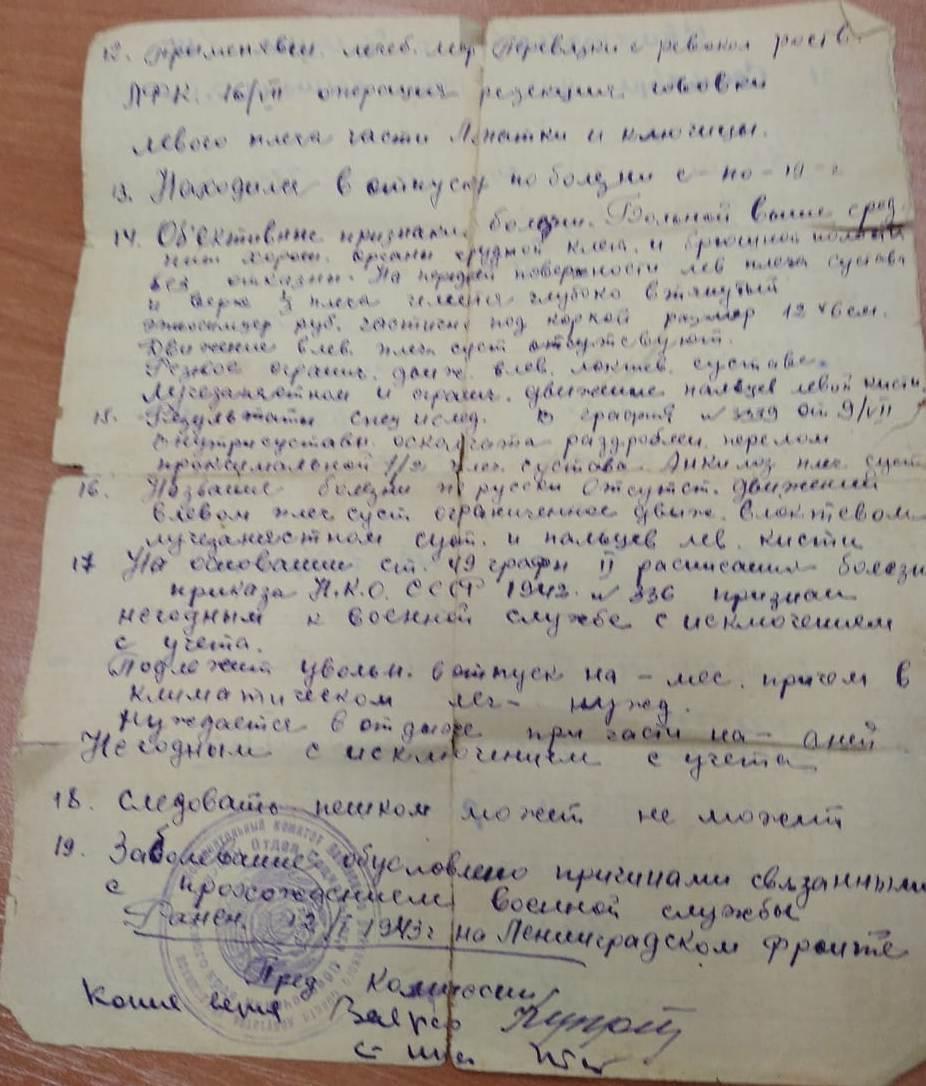 12. Применявш. лечеб. мер. Перевязки с ревокол раств.
ЛФК 16/VII операция резекция головки
левого плеча части Лопатки и ключицы.
13. Находился в отпуску по болезни с - по - 19 - г
14. Об'ективные признаки болезни. Больной выше сред.
пит хорош. органы грудной клет. и брюшной полости
без отказни. На передней поверхности лев плеча сустава
и верх ⅓ плеча имеется глубоко втянутый
руб. частично под коркой размер 12×6 см.
Движение в лев. плеч. суст отсутствуют.
Резкое огранич. движ. в лев. локтев. суставе.
Лучезапястном и огранич. движение пальцев левой кисти.
15. Результаты спец исслед. R графия № 3339 от 9/VII
Внутрисуставн. оскольчата раздроблен. перелом
проксимальной 1/2 плеч. сустава. Анкилоз плеч. суст
16. Название болезни по русски Отсутст. движений
в левом плеч суст. ограниченное движ. в локтевом
лучезапястном суст. и пальцев лев. кисти
17 На основании ст. 49 графы II расписания болезн
приказа Н.К.О. СССР 1942. № 336 признан
негодным к военной службе с исключением
с учета.
Подлежит увольн. в отпуск на - мес. причем в
климатическом леч - нужд.
Нуждается в отдыхе при части на - дней
Негодным с исключением с учета
18. Следовать пешком может не может
19. Заболевание обусловлено причинами связанными
с прохождением военной службы
Ранен. /I 1943 г на Ленинградском фронте
Пред. Комиссии
Копия верна